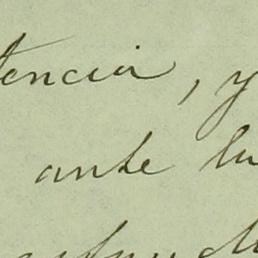 tencia, y
ante lu